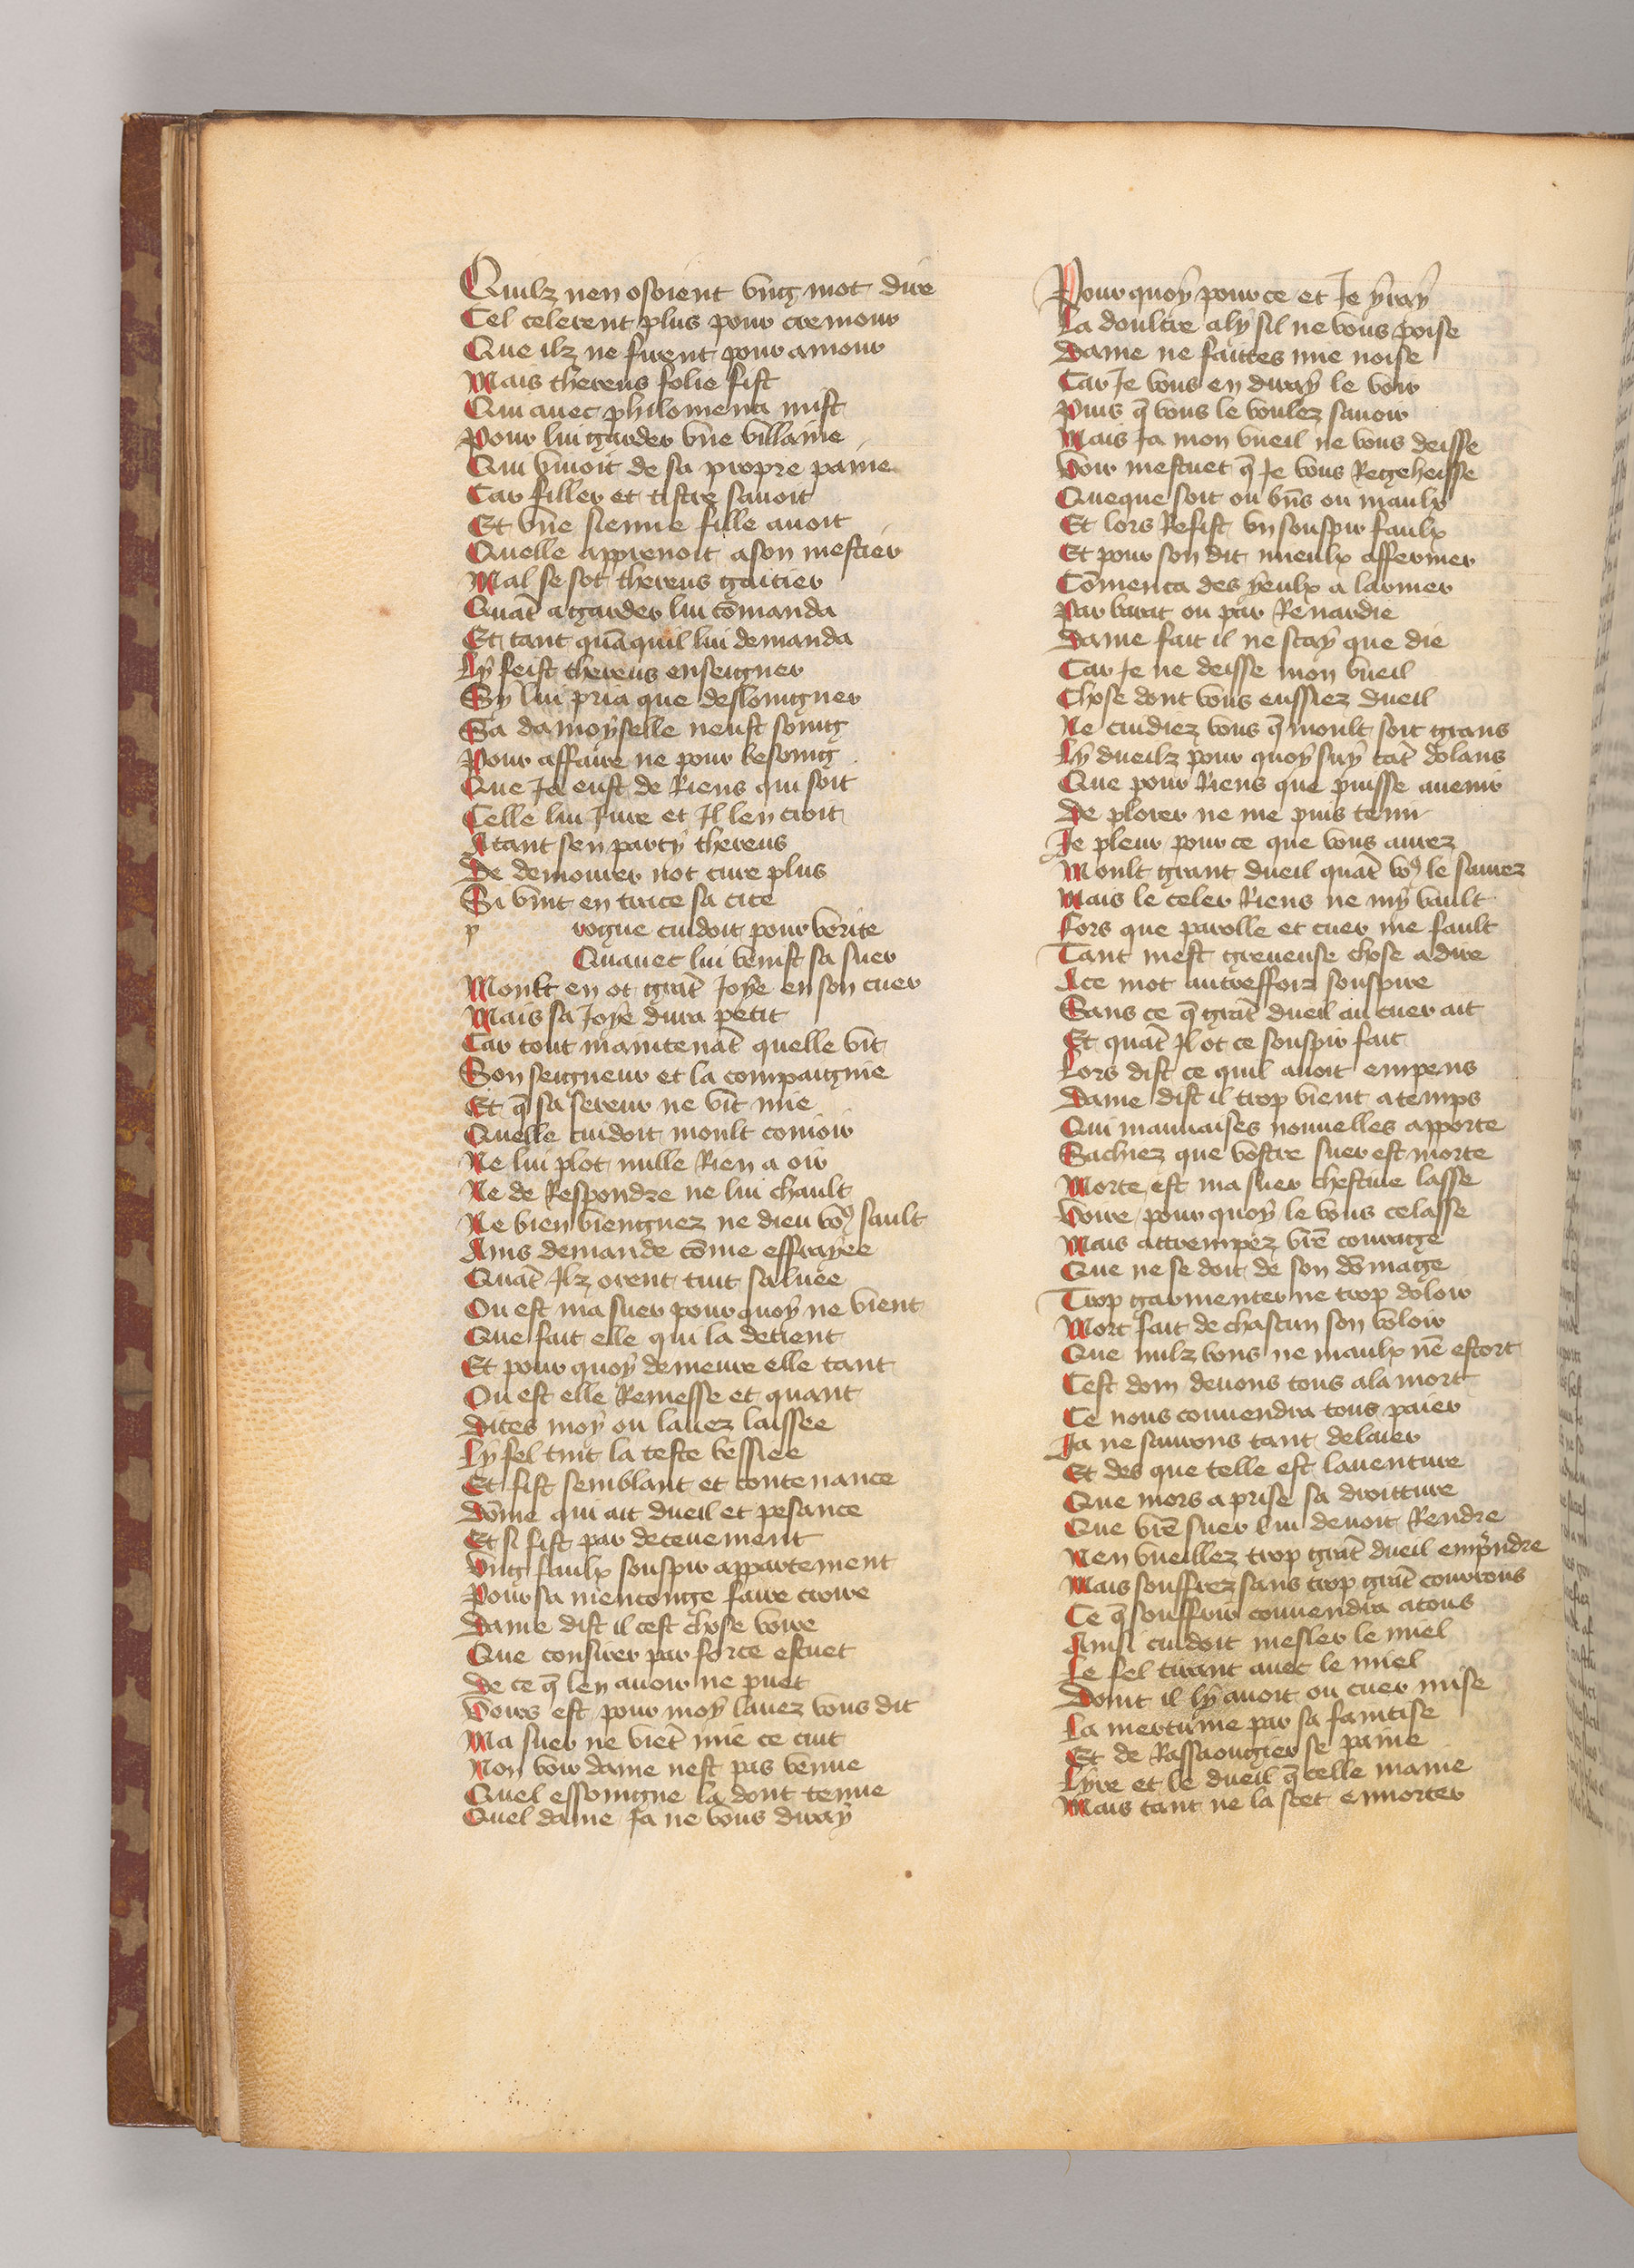 Quilz nen osoient vng mot dire
Cel celerent plus pour cremour
Que ilz ne firent pour amour
Mais thereus folie fist
Qui auec philomena mist
Pour lui garder vne villaine
Qui viuoit de sa propre paine
Car filler et tistre sauoit
Et vne sienne fille auoit
Quelle apprenoit a son mestier
Mal se sot thereus gaitier
Quāt a garder lui cōmanda
Et tant quāquil lui demanda
Ly feist thereus enseigner
Sy lui pria que desloingner
Sa damoyselle neust soing
Pour affaire ne pour besoing
Que Ja eust de Riens qui soit
Celle lui Jure et Il len croit
Atant sen party thereus
De demourer not cure plus
Si vint en trace sa cite
p rogue cuidoit pour verite
Quauec lui venist sa suer
Moult en ot grāt Joye en son cuer
Mais sa Joye dura petit
Car tout maintenāt quelle vit
Son seigneur et la compaignie
Et q̄ sa sereur ne vit mie
Quelle cuidoit moult conioir
Ne lui plot nulle Rien a oir
Ne de Respondre ne lui chault
Ne bien viengnez ne dieu voꝰ sault
Ains demande cōme effrayee
Quāt Ilz orent tuit saluee
Ou est ma suer pour quoy ne vient
Que fait elle qui la detient
Et pour quoy demeure elle tant
Ou est elle Remesse et quant
Dites moy ou lauez laissee
Ly fel tint la teste bessiee
Et fist semblant et contenance
Dōme qui ait dueil et pesance
Et si fist par deceuement
Vng faulx souspir appartement
Pour sa mencongne faire croire
Dame dist il cest chose voire
Que consirer par force estuet
De ce q̄ len auoir ne puet
Voirs est pour moy lauez vous dit
Ma suer ne viēt mie ce cuit
Non voir dame nest pas venue
Quel essoingne la dont tenue
Quel dame Ja ne vous diray
Pour quoy pour ce et Je yray
La doultre a ly sil ne vous poise
Dame ne faittes mie noise
Car Je vous en diray le voir
Puis q̄ vous le voulez sauoir
Mais Ja mon vueil ne vous deisse
Voir mestuet q̄ Je vous Regeheisse
Queque soit ou bñs ou maulx
Et lors Refist vn souspir faulx
Et pour son dit mieulx affermer
Cōmenca des yeulx a larmer
Par barat ou par Renardie
Dame fait il ne scay que die
Car Je ne deisse mon vueil
Chose dont vous eussiez dueil
Ne cuidiez vous q̄ moult soit grans
Ly dueilz pour quoy suy tāt dolans
Que pour Riens que puisse auenir
De plorer ne me puis tenir
Je pleur pour ce que vous aurez
Moult grant dueil quāt voꝰ le saurez
Mais le celer Riens ne my vault
Fors que parolle et cuer me fault
Tant mest greueuse chose a dire
A ce mot autreffoiz souspire
Sans ce q̄ grāt dueil au cuer ait
Et quāt Il ot ce souspir fait
Lors dist ce quil auoit empens
Dame dist il trop vient a temps
Qui mauuaises nouuelles apporte
Sachiez que vostre suer est morte
Morte est ma suer chestiue lasse
Voire pour quoy le vous celasse
Mais attrempez vr̄e courage
Que ne se doit de son dōmage
Trop garmenter ne trop doloir
Mort fait de chascun son voloir
Que nulz bons ne maulx nē estort
Cest dom deuons tous a la mort
Ce nous conuendra tous paier
Ja ne saurons tant delaier
Et des que telle est lauenture
Que mors a prise sa droitture
Que vr̄e suer lui deuoit Rendre
Nen vueillez trop grāt dueil emprendre
Mais souffrez sans trop grāt courrous
Ce q̄ souffrir conuendra a tous
Ainsi cuidoit mesler le miel
Le fel tirant auec le miel
Dont il ly auoit ou cuer mise
La mertume par sa faintise
Et de Rassaougier se paine
Lyre et le dueil q̄ celle maine
Mais tant ne la scet enhorter